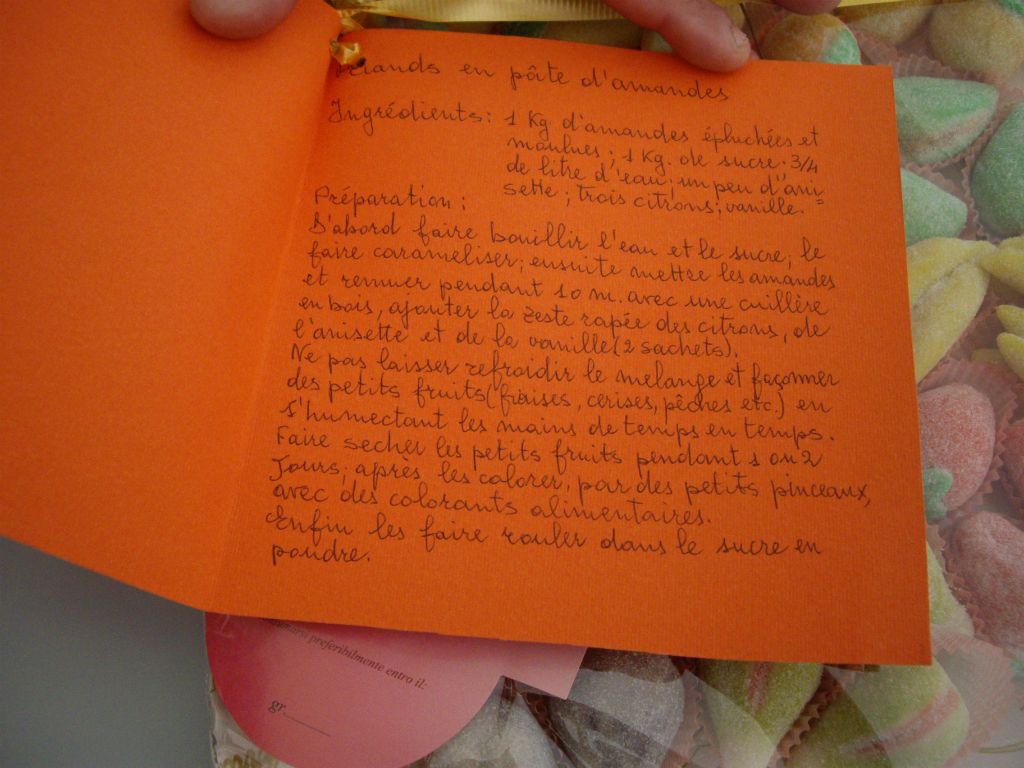 Friands en pâte d'amandes
Ingrédients: 1 Kg d'amandes épluchées et
moulues; 1 Kg. de sucre. 3/4
de litre d'eau. un peu d'ani=
sette; trois citrons; vanille.
Préparation:
D'abord faire bouillir l'eau et le sucre, le
faire caraméliser; ensuite mettre les amandes
et remuer pendant 10 m. avec une cuillère
en bois, ajouter la zeste rapée des citrons, de
l'anisette et de la vanille (2 sachets).
Ne pas laisser refroidir le melange et façonner
des petits fruits (fraises, cerises, pêches etc.) en
s'humectant les mains de temps en temps.
Faire secher les petits fruits pendant 1 ou 2
Jours; après les colorer, par des petits pinceaux,
avec des colorants alimentaires.
Enfin les faire rouler dans le sucre en
poudre.
preferibilmente entro il:
gr.